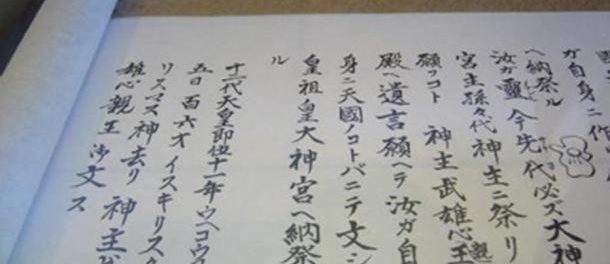 ガ自身ニ作
ヘ納祭ル
汝ガ靈今先代必ズ大神
宮主孫々代神主ニ祭リ
願フコト 神主武雄心王
殿ヘ遺言願ヘテ汝ガ自
身ニ天國ノコトバニテ文シ
皇祖皇大神宮ヘ納祭
ル
十二代天皇即位十一年ウヘコウ
五日 百六才 イスキリス
リスマズ神去リ 神主
雄心親王 御文ス